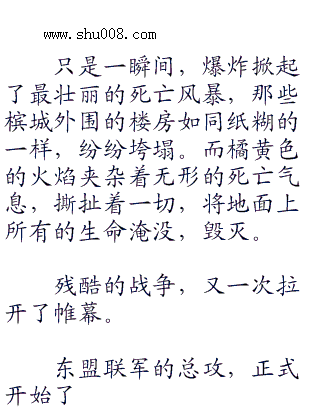 www.shu008.com
只是一瞬间，爆炸掀起
了最壮丽的死亡风暴，那些
槟城外围的楼房如同纸糊的
一样，纷纷垮塌。而橘黄色
的火焰夹杂着无形的死亡气
息，撕扯着一切，将地面上
所有的生命淹没，毁灭。
残酷的战争，又一次拉
开了帷幕。
东盟联军的总攻，正式
开始了